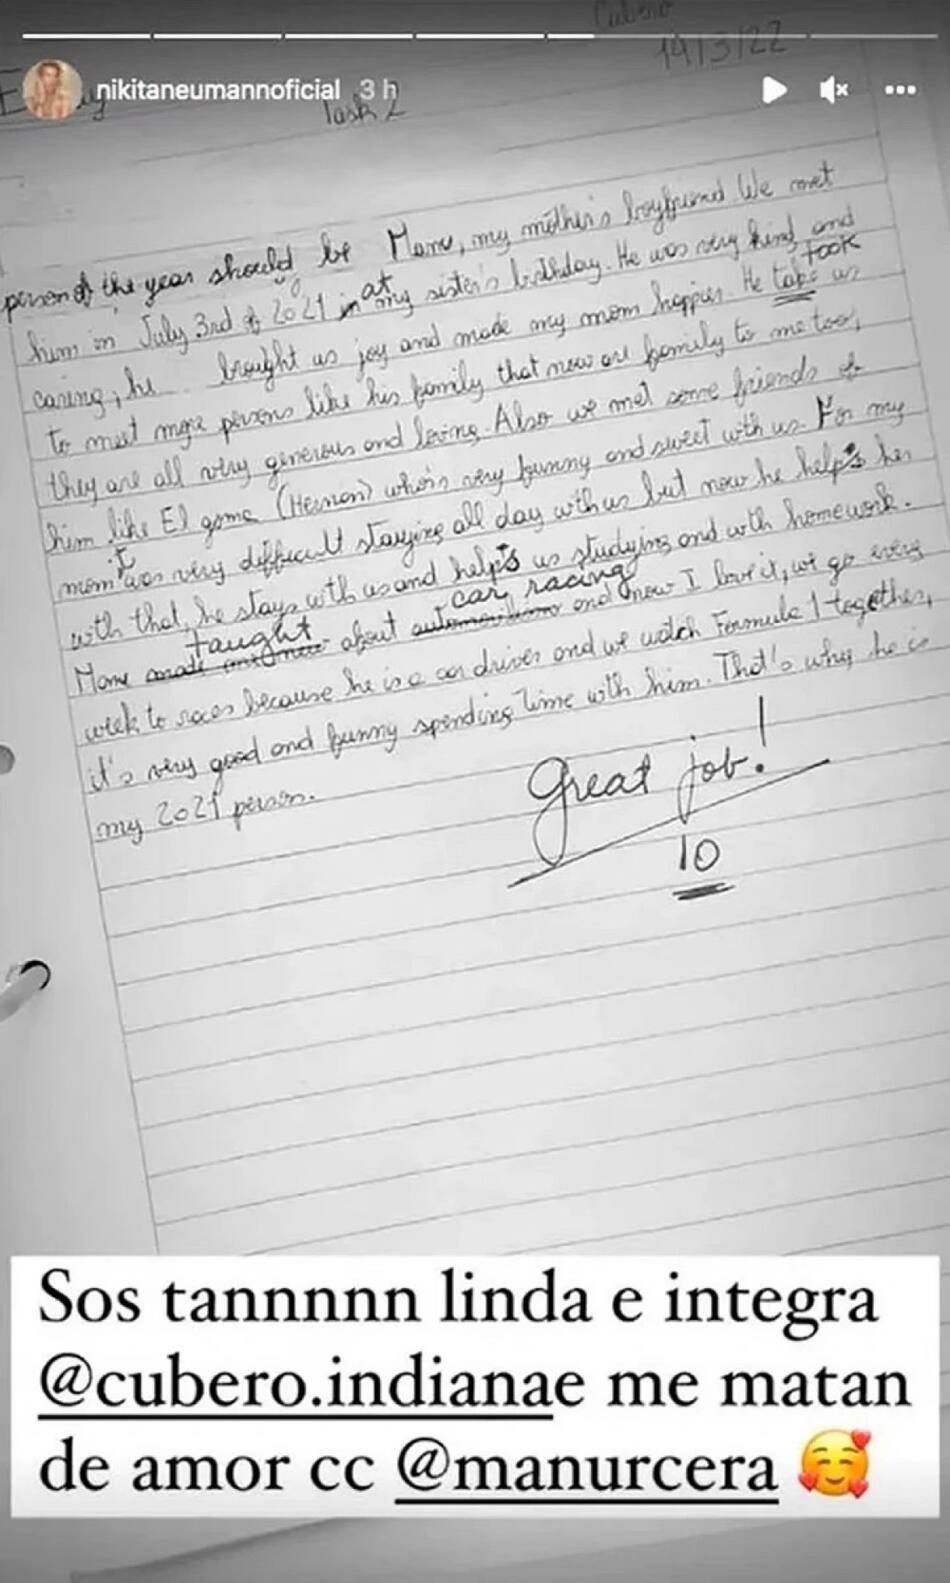 Cubero
14/3/22
nikitaneumannoficial 3 h
Task 2
person of the year should be Manu, my mother's boyfriend. We met
him in July 3rd of 2021 in at my sister's birthday. He was very kind and
caring, he brought us joy and made my mom happier. He take took us
to meet more persons like his family that now are family to me too,
they are all very generous and loving. Also we met some friends of
him like El goma (Hernan) who's very funny and sweet with us. For my
mom it was very difficult staying all day with us but now he help's her
with that, he stays with us and help's us studying and with homework.
Manu taught about automovilismo car racing and now I love it, we go every
week to races because he is a car driver and we watch Formula 1 together,
it's very good and funny spending time with him. That's why he is
my 2021 person.
Great job!
10
Sos tannnnn linda e integra
@cubero.indianae me matan
de amor cc @manurcera 🥰